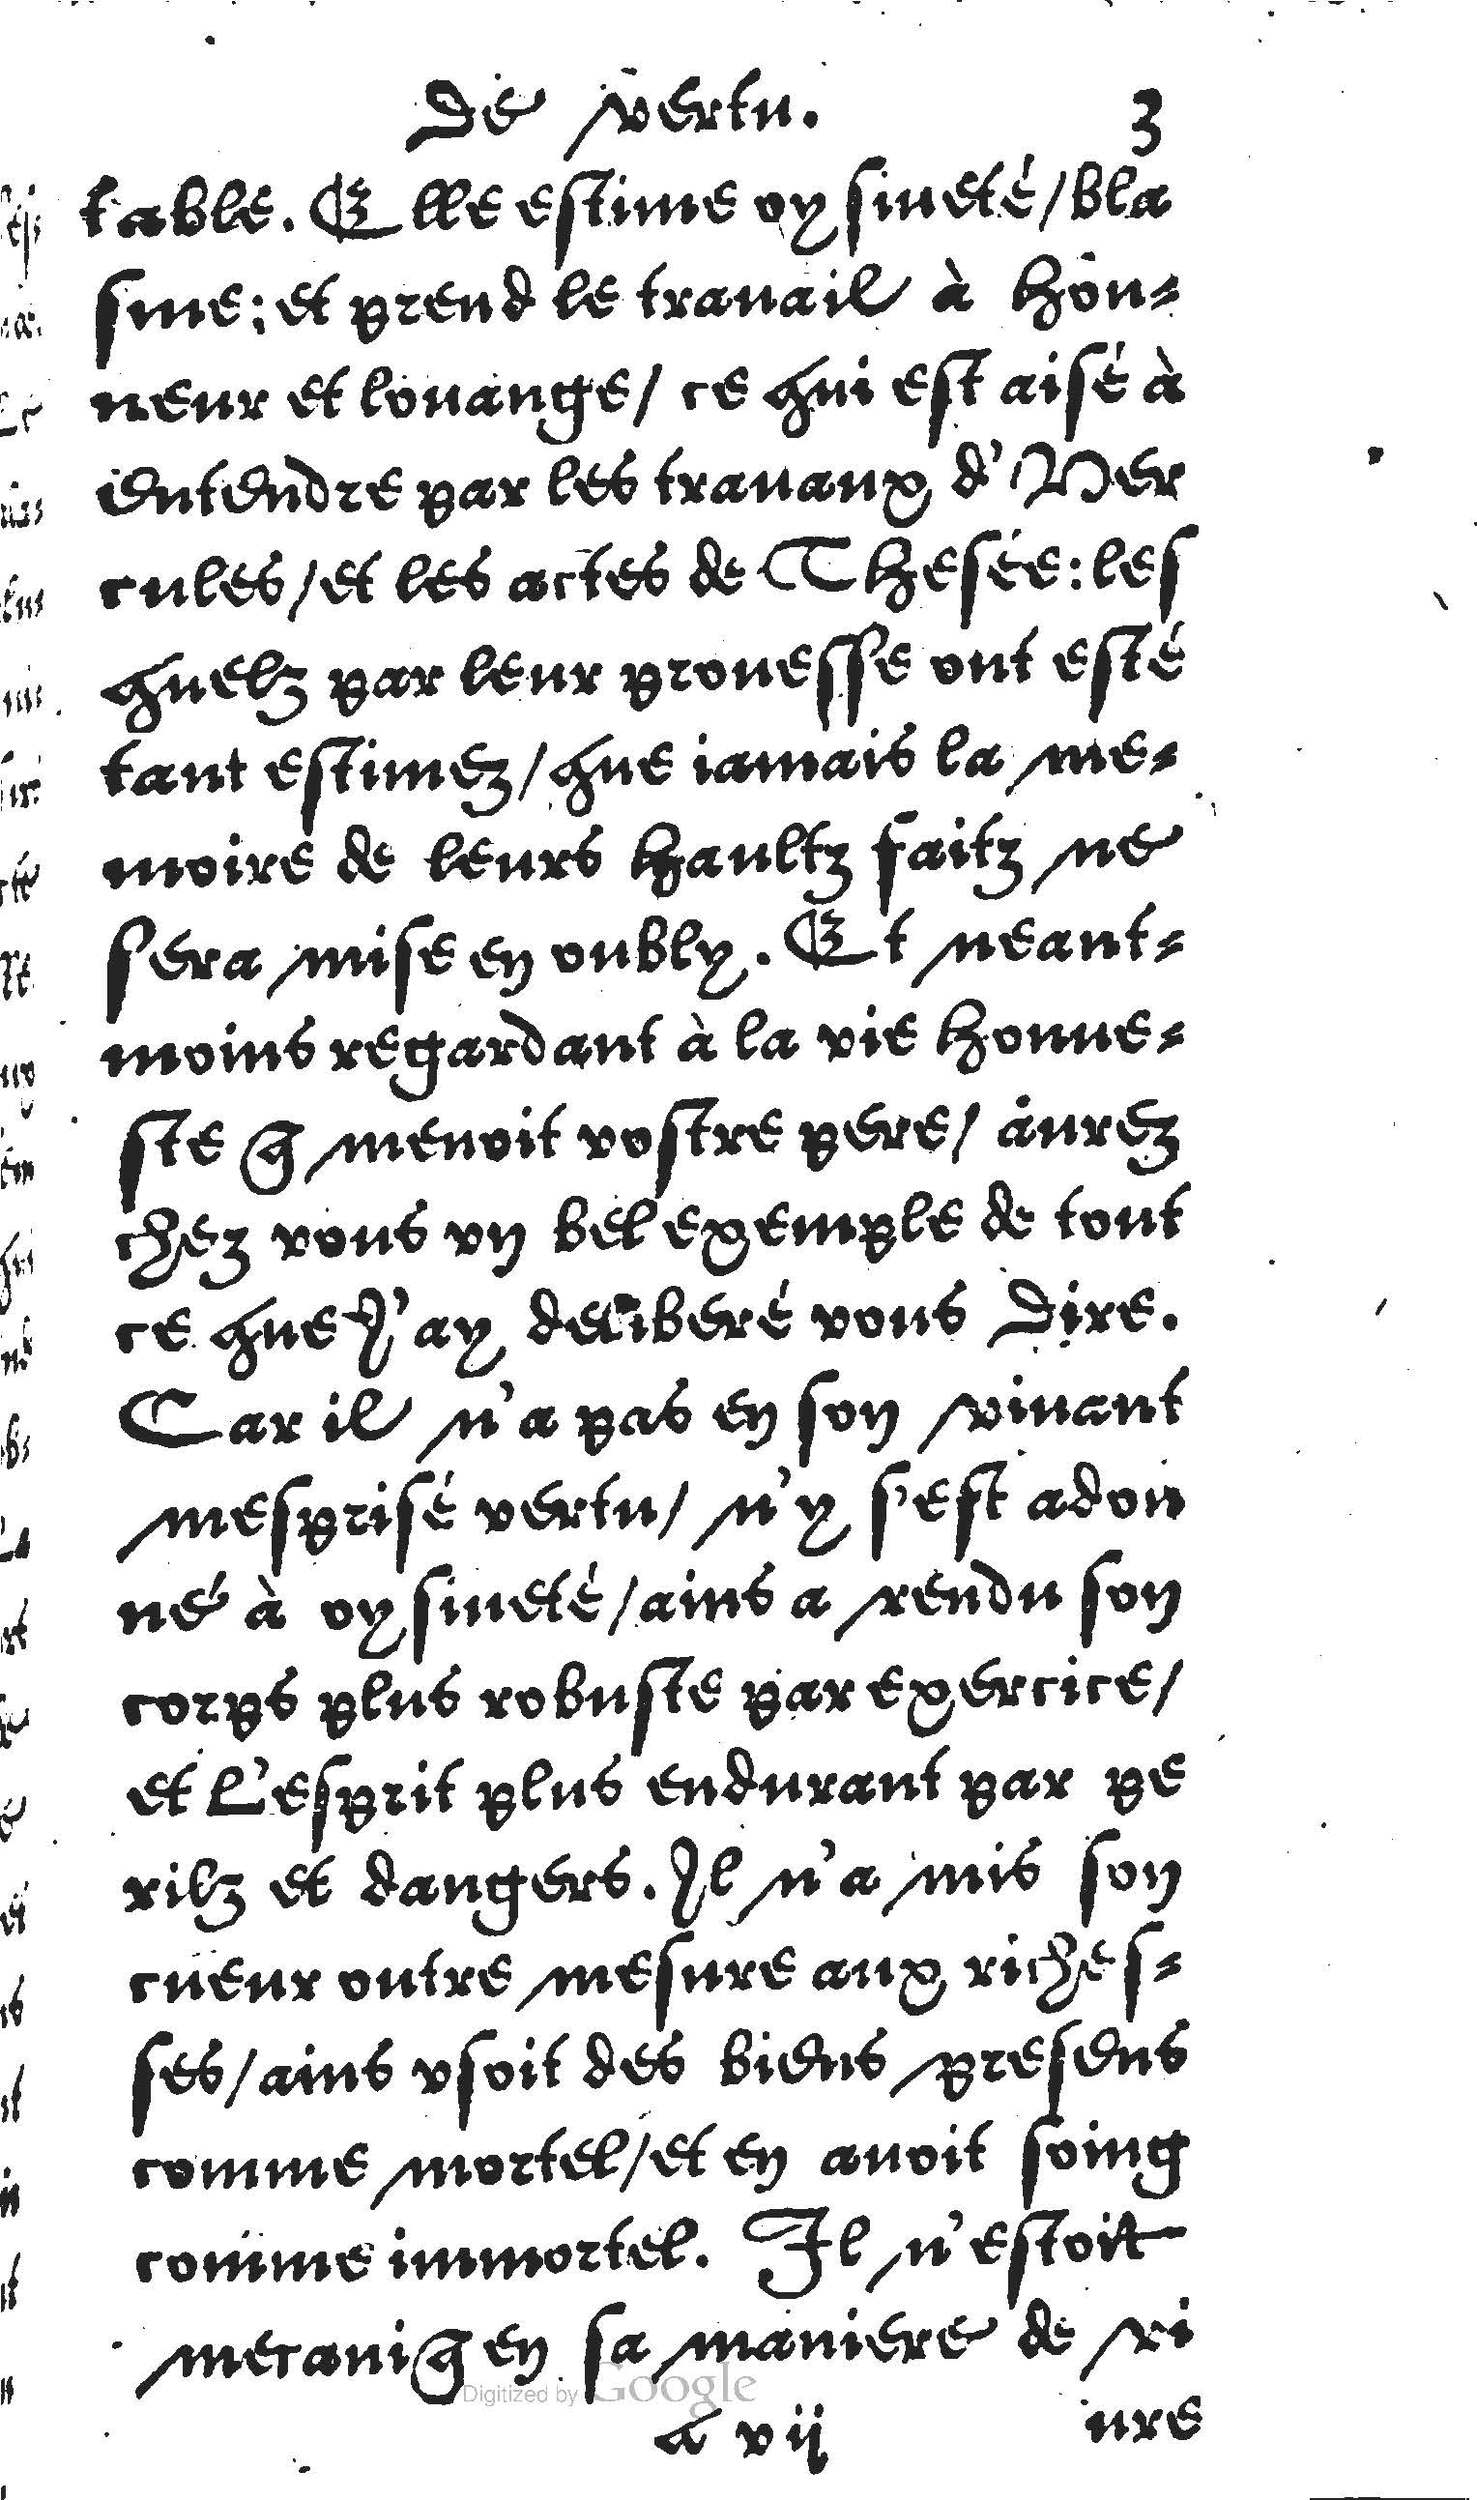 De vertu. 3
table. Elle estime oysiueté/bla
sme: et prend le trauail à hon-
neur et louange/ ce qui est aisé à
entendre par les trauaux d'Her
cules/et les actes de Thesée: les
quelz par leur prouesse ont esté
tant estimez/que iamais la me-
moire de leurs haultz faitz ne
sera mise en oubly. Et neant-
moins regardant à la vie honne-
ste q̃ menoit vostre pere/ aurez
chez vous vn bel exemple de tout
ce que J'ay deliberé vous dire.
Car il n'a pas en son viuant
mesprisé vertu/ n'y s'est adon
né à oysiueté/ains a rendu son
corps plus robuste par exercice/
et l'esprit plus endurant par pe
rilz et dangers. Il n'a mis son
cueur outre mesure aux riches-
ses/ains vsoit des biens presens
comme mortel/et en auoit soing
comme immortel. Il n'estoit
mecaniq̃ en sa maniere de vi
a vij ure
Digitized by Google